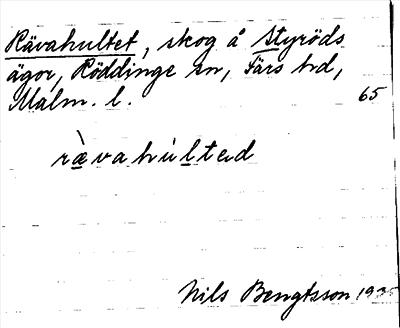 Rävahultet, skog å Styröds
ägor, Röddinge sn, Färs hd,
Malm. l. 65
ræ̀vahúlted
Nils Bengtsson